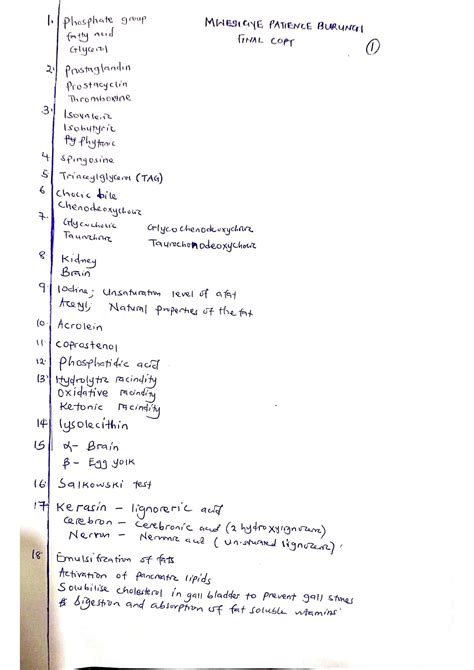 MWESIGYE PATIENCE BURUNGI
FINAL COPY
①
1. Phosphate group
fatty acid
Glycerol
2. Prostaglandin
Prostacyclin
Thromboxine
3. Isovaleric
Isobutyric
Phytonic
4 Spingosine
5 Triacylglycerol (TAG)
6 Cholic bile
Chenodeoxycholic
7. Glycocholic Glycochenodeoxycholic
Taurocholic Taurochenodeoxycholic
8. Kidney
Brain
9 Iodine; Unsaturation level of a fat
Acetyl, Natural properties of the fat
10. Acrolein
11 coprostenol
12. Phosphatidic acid
13. Hydrolytic racindity
Oxidative racindity
Ketonic racindity
14 lysolecithin
15 α- Brain
β - Egg yolk
16. Salkowski test
17 Kerasin - lignoreric acid
Cerebron - Cerebronic acid (2 hydroxylignoceric)
Nervon - Nervonic acid (unsaturated lignoceric)
18 Emulsification of fats
Activation of pancreatic lipids
Solubilise cholesterol in gall bladder to prevent gall stones
digestion and absorption of fat soluble vitamins